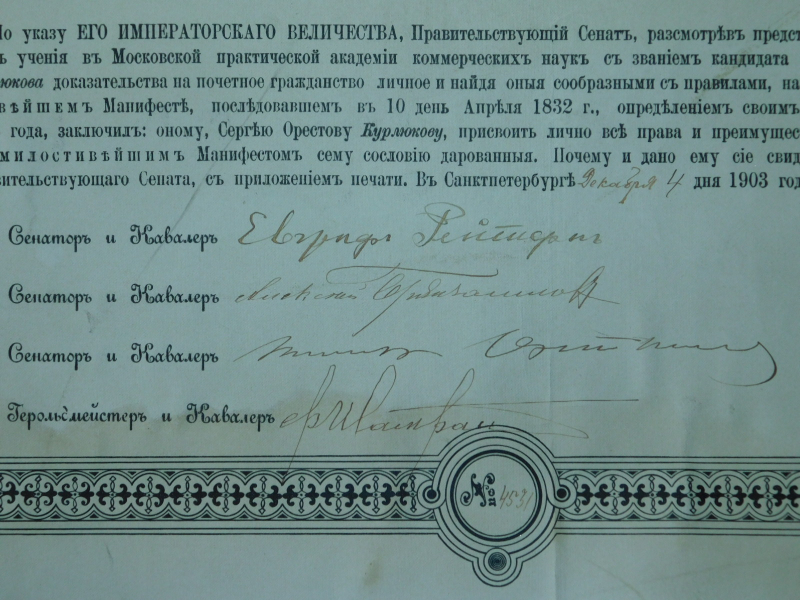 По указу ЕГО ИМПЕРАТОРСКАГО ВЕЛИЧЕСТВА, Правительствующій Сенатъ, разсмотрѣвъ предст
ъ ученія въ Московской практической академіи коммерческихъ наукъ съ званіемъ кандидата
мюкова доказательства на почетное гражданство личное и найдя оныя сообразными съ правилами, на
вѣйшемъ Манифестѣ, послѣдовавшемъ въ 10 день Апрѣля 1832 г., опредѣленіемъ своимъ
года, заключилъ: оному, Сергѣю Орестову Курмюкову, присвоить лично всѣ права и преимущес
милостивѣйшимъ Манифестомъ сему сословію дарованныя. Почему и дано ему сіе свид
вительствующаго Сената, съ приложеніемъ печати. Въ Санктпетербургѣ Декабря 4 дня 1903 год
Сенаторъ и Кавалеръ Евграфъ Рейтернъ
Сенаторъ и Кавалеръ
Сенаторъ и Кавалеръ
Герольдмейстеръ и Кавалеръ
№ 4531